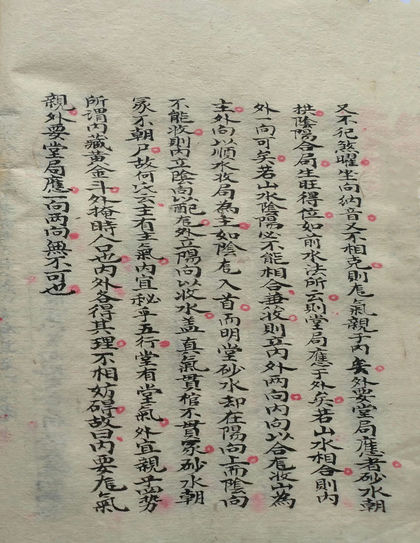 又不犯煞曜坐向納音又不相克則龍氣親于內矣外要堂局應者砂水朝
拱陰陽合局生旺得位如前水法所云則堂局應于外矣若山水相合則內
外一向可矣若山水陰陽必不能相合無收則立內外兩向內向以合龍收山為
主外向以順水收局為主如陰龍入首而明堂砂水却在陽向上而陰向
不能收則內立陰向以配龍外立陽向以收水盖真氣貫棺不貫冢砂水朝
冢不朝尸故何公云主有主氣內宜秘乎五行堂有堂氣外宜親乎勢
所謂內藏黃金斗外掩時人口也內外各得其理不相妨碍故曰內要龍氣
親外要堂局應一向兩向無不可也